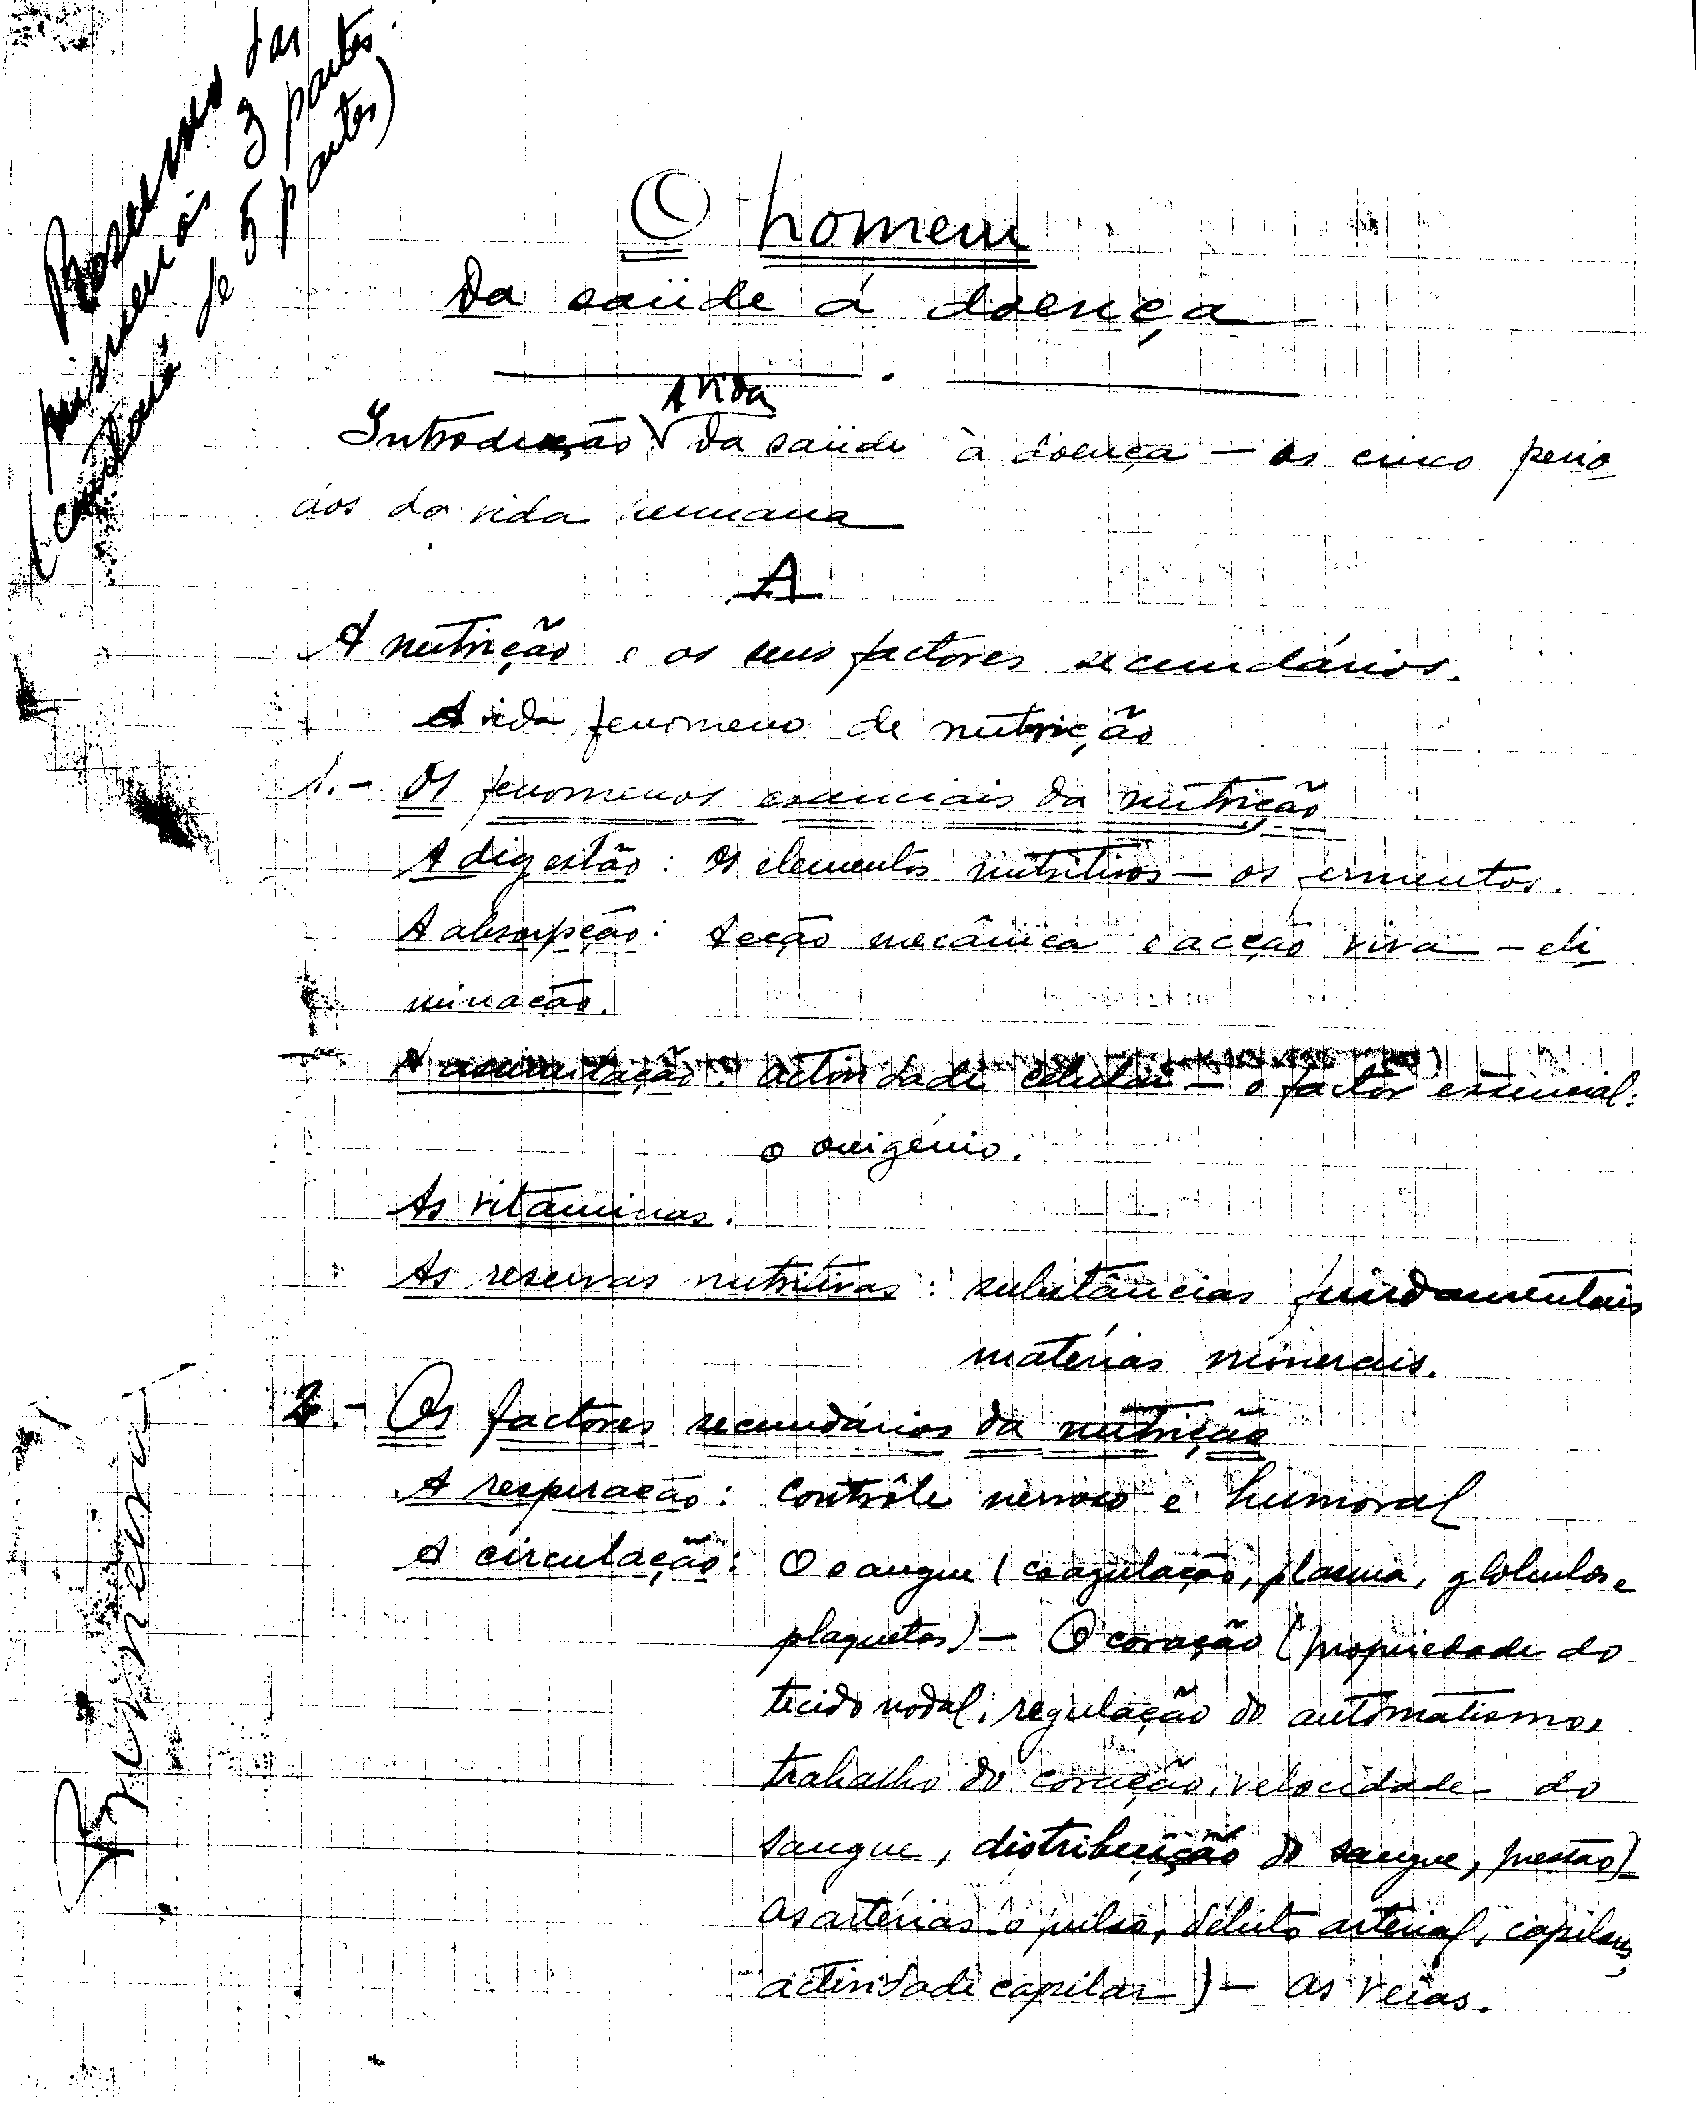 das
primeiras 3 partes
de 5 partes)
O homem
Da saúde á doença
A vida
Introdução da saúde à doença — os cinco perio-
dos da vida humana
A
A nutrição e os seus factores secundários.
A vida fenomeno de nutrição
1. - Os fenomenos essenciais da nutrição
A digestão: os elementos nutritivos — os fermentos.
A absorpção: acção mecânica e acção viva — eli-
minação.
A assimilação: actividade celular — o factor essencial:
o oxigénio.
As vitaminas.
As reservas nutritivas: substâncias fundamentais
matérias minerais.
2. - Os factores secundários da nutrição
A respiração: contrôle nervoso e humoral
A circulação: O sangue (coagulação, plasma, globulos e
plaquetas) — O coração (propriedade do
tecido nodal, regulação do automatismo e
trabalho do coração, velocidade do
sangue, distribuição do sangue, pressão) -
As artérias o pulso, débito arterial, capilares,
actividade capilar) — as veias.